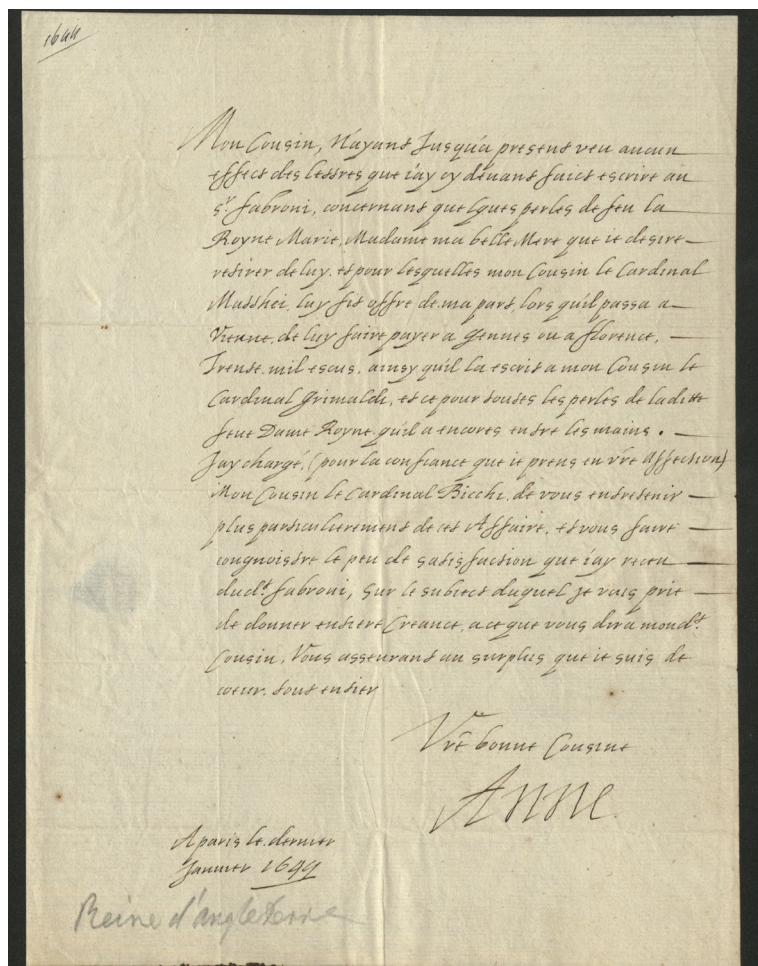 1644
Mon Cousin, N'ayant Jusqu'a present veu aucun
effect des lettres que i'ay cy deuant faict escrire au
Sr. Fabroni, concernant quelques perles de feu la
Royne Marie, Madame ma belle Mere que ie desire
retirer de luy. et pour lesquelles mon Cousin le Cardinal
Matthei, luy fit offre de ma part, lors qu'il passa a
Vienne, de luy faire payer a Gennes ou a florence,
Trente mil escus, ainsy qu'il la escrit a mon Cousin le
Cardinal Grimaldi, et ce pour toutes les perles de laditte
feue Dame Royne qu'il a encores entre les mains.
J'ay chargé, (pour la confiance que ie prens en vre affection)
Mon Cousin le Cardinal Bicchi, de vous entretenir
plus particulierement de cet Affaire, et vous faire
cognoistre le peu de satisfaction que i'ay receu
dudt. fabroni, Sur le subiect duquel je vous prie
de donner entiere Creance, a ce que vous dira mondt.
Cousin, Vous asseurant au surplus que ie suis de
coeur tout entier
Vre bonne Cousine
Anne
A paris le dernier
Januier 1644
Reine d'angleterre